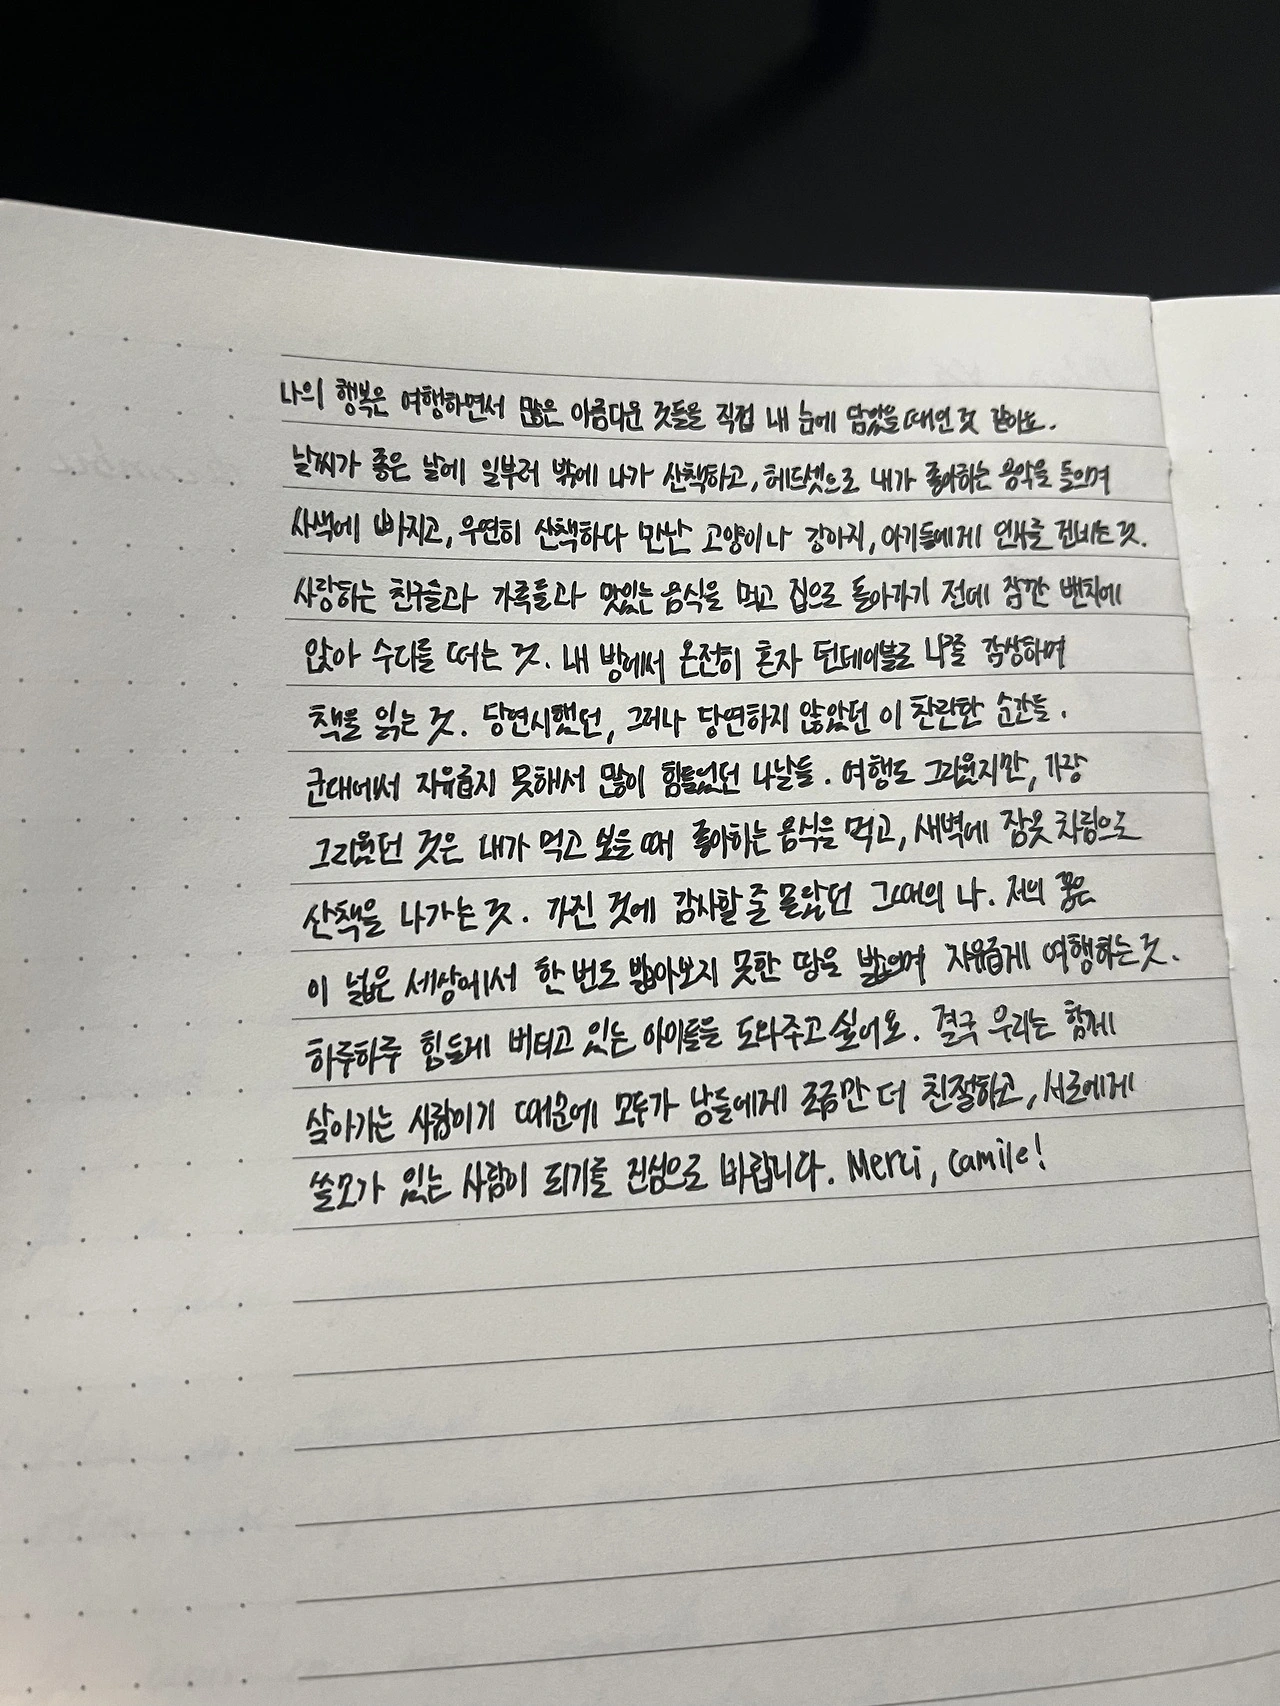 나의 행복은 여행하면서 많은 아름다운 것들을 직접 내 눈에 담았을 때인 것 같아요.
날씨가 좋은 날에 일부러 밖에 나가 산책하고, 헤드셋으로 내가 좋아하는 음악을 들으며
사색에 빠지고, 우연히 산책하다 만난 고양이나 강아지, 아기들에게 인사를 건네는 것.
사랑하는 친구들과 가족들과 맛있는 음식을 먹고 집으로 돌아가기 전에 잠깐 벤치에
앉아 수다를 떠는 것. 내 방에서 온전히 혼자 턴테이블로 나를 감상하며
책을 읽는 것. 당연시했던, 그러나 당연하지 않았던 이 찬란한 순간들.
군대에서 자유롭지 못해서 많이 힘들었던 나날들. 여행도 그리웠지만, 가장
그리웠던 것은 내가 먹고 싶을 때 좋아하는 음식을 먹고, 새벽에 잠옷 차림으로
산책을 나가는 것. 가진 것에 감사할 줄 몰랐던 그때의 나. 저의 꿈은
이 넓은 세상에서 한 번도 밟아보지 못한 땅을 밟으며 자유롭게 여행하는 것.
하루하루 힘들게 버티고 있는 아이들을 도와주고 싶어요. 결국 우리는 함께
살아가는 사람이기 때문에 모두가 남들에게 조금만 더 친절하고, 서로에게
쓸모가 있는 사람이 되기를 진심으로 바랍니다. Merci, Camile!